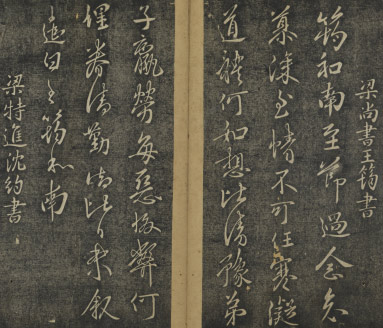 梁尚書王筠書
筠和南至節過念哀
慕深至情不可任寒凝
道體何如想比清豫弟
子羸勞每惡極弊何
眷清勤比叙
遣白筠和南
梁特進沈約書